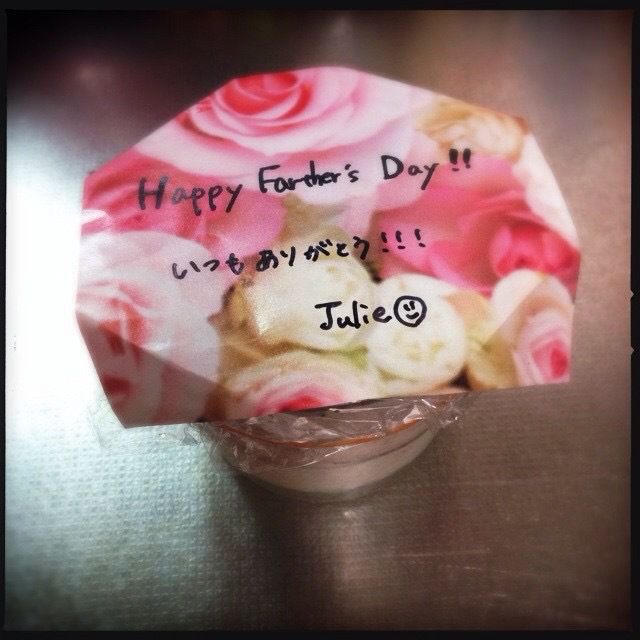 Happy Farther's Day!!
いつもありがとう!!!
Julie☺